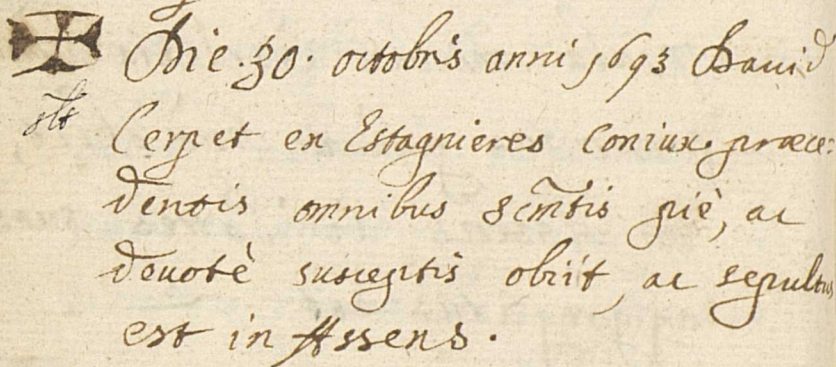 Die · 30 · octobris anni 1693 David
Cerpet ex Estagnieres Coniux præce:
dentis omnibus Scm̃tis piè, ac
devotè susceptis obiit, ac sepultus
est in Assens .